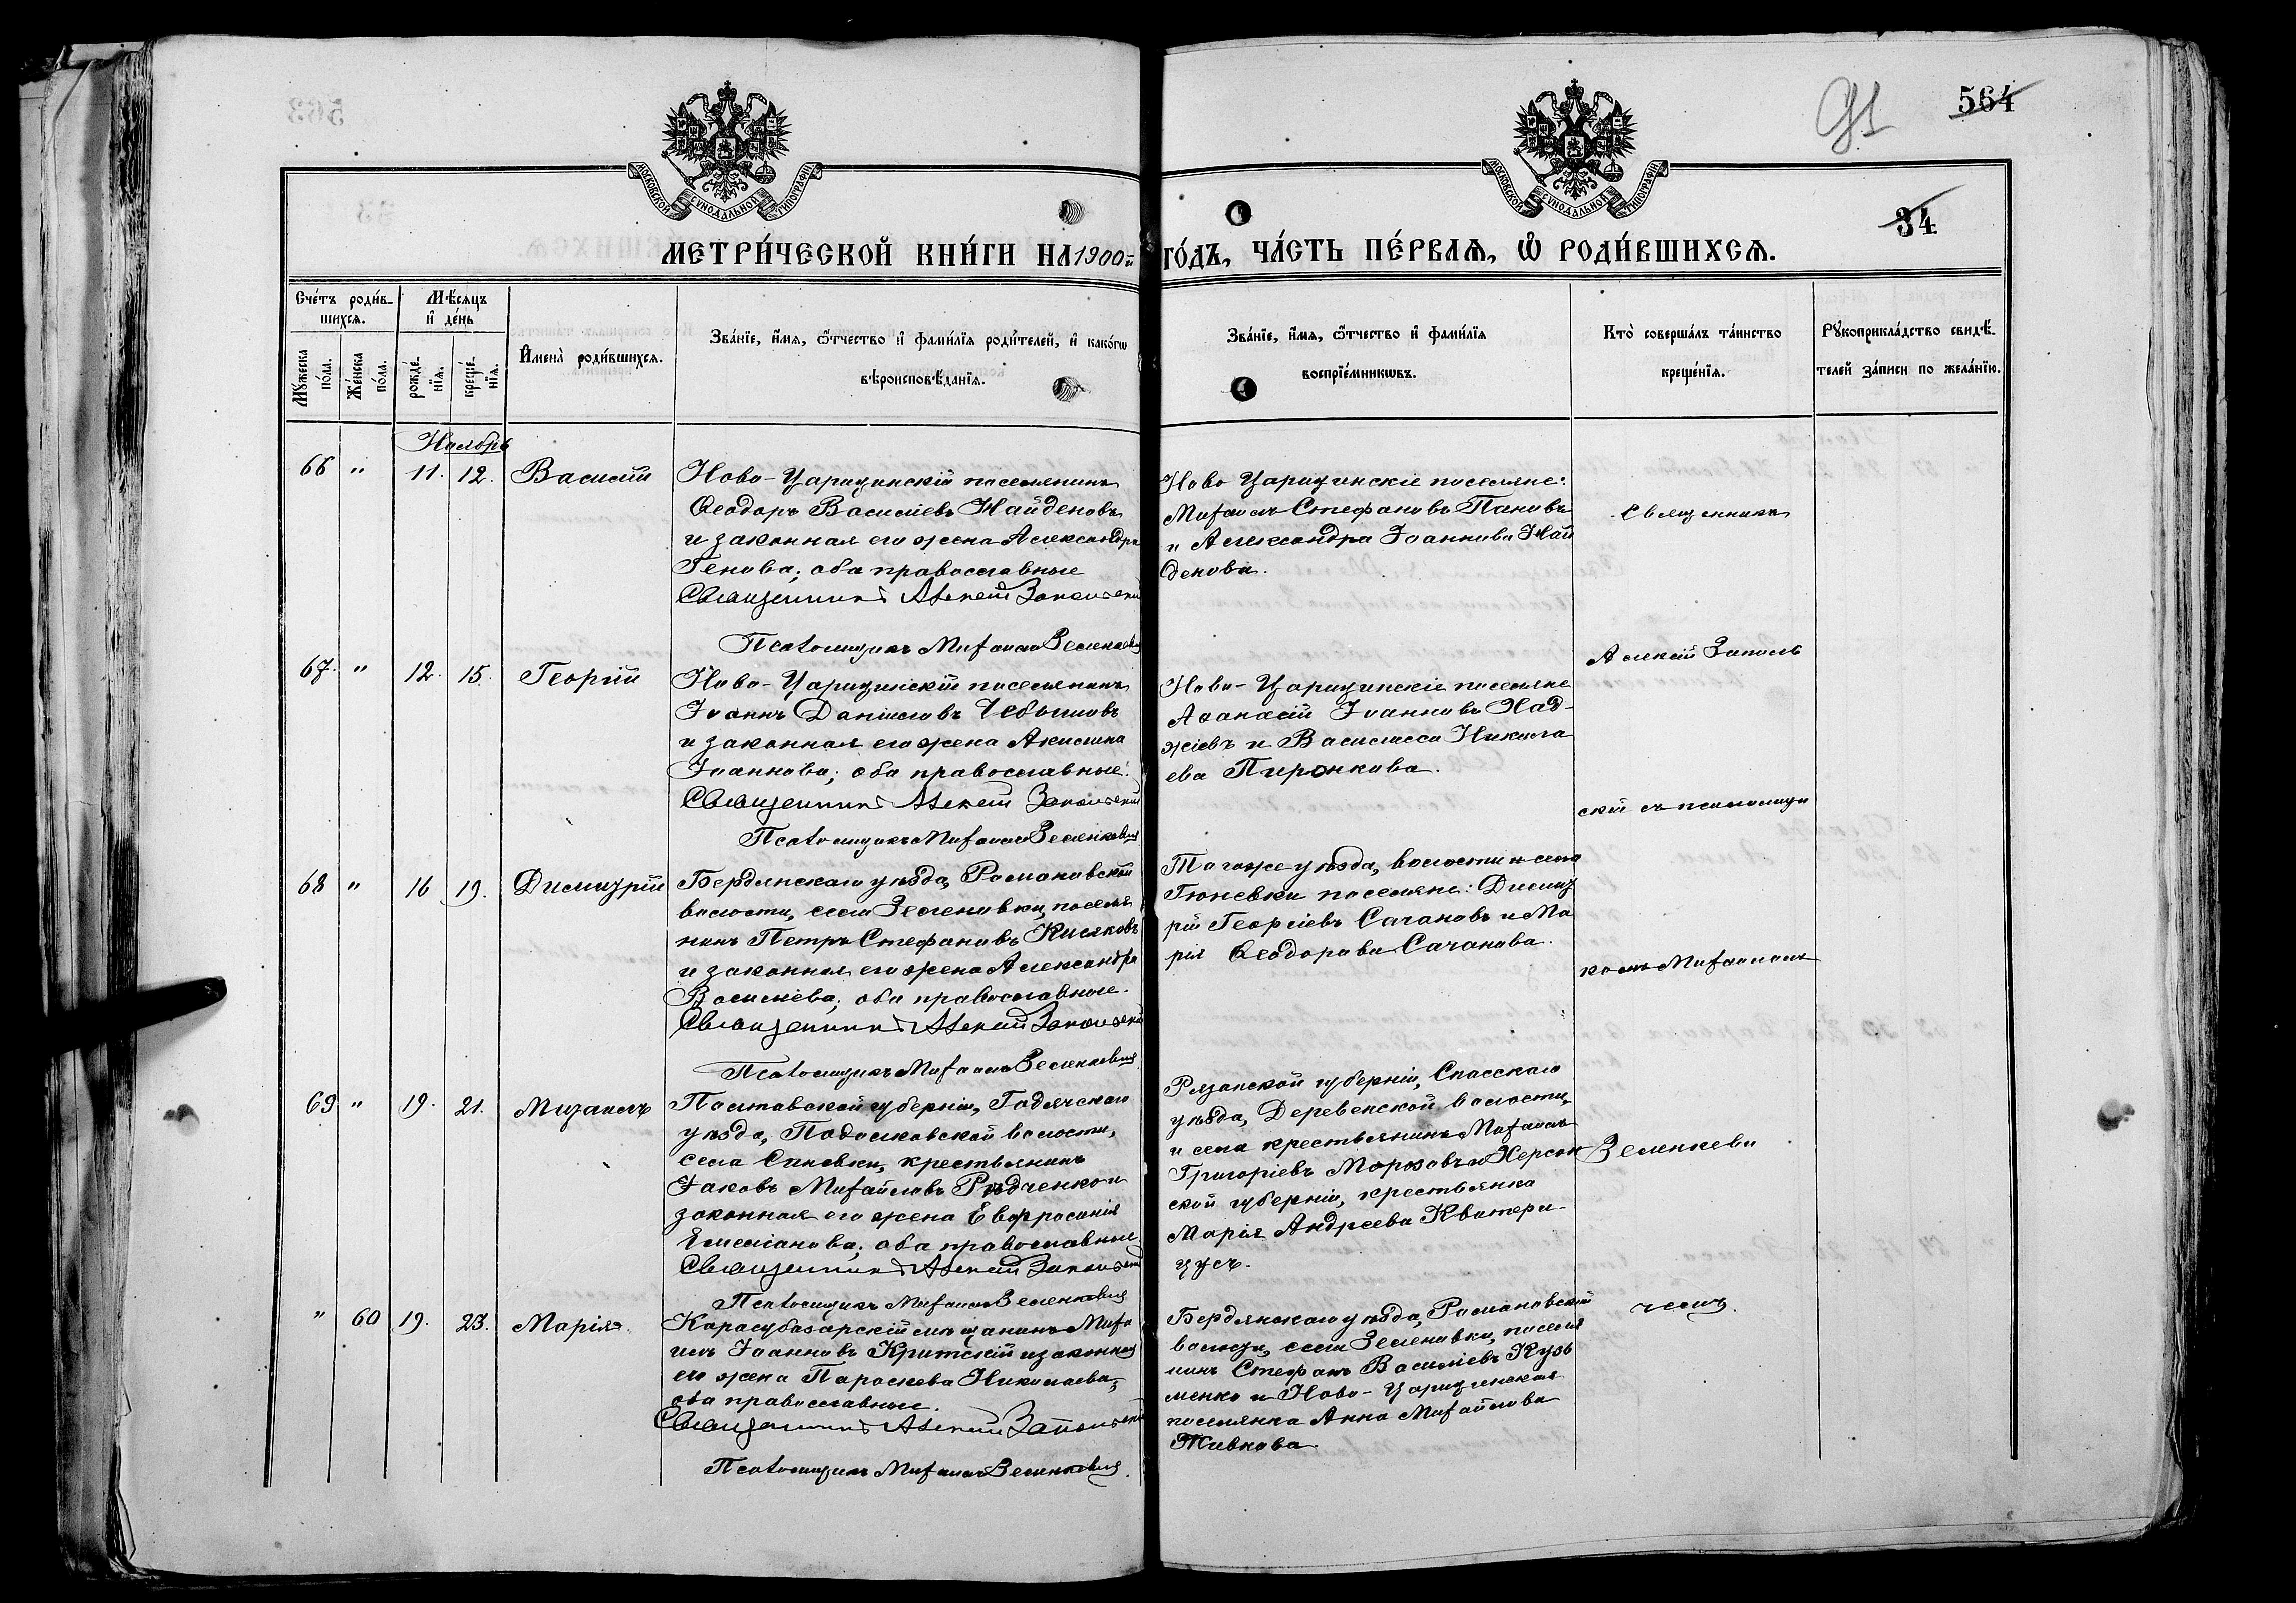 564
91
34
МОСКОВСКОЙ СѴНОДАЛЬНОЙ ТИПОГРАФІИ
МОСКОВСКОЙ СѴНОДАЛЬНОЙ ТИПОГРАФІИ
МЕТРИ́ЧЕСКОЙ КНИ́ГИ НА 1900й ГО́ДЪ, ЧА́СТЬ ПЕ́РВАѦ, Ѡ҆ РОДИ́ВШИХСѦ.
Сче́тъ роди́в-
шихся.
Мѣ́сяцъ
и҆ де́нь
Мꙋ́жеска по́ла.
Же́нска по́ла.
рожде́-нїя.
креще́-нїя.
И҆мена̀ роди́вшихся.
Зва́нїе, и҆́мя, ѻ҆́тчество и҆ фами́лїя роди́телей, и҆ како́гѡ
вѣроисповѣ́данїя.
Зва́нїе, и҆́мя, ѻ҆́тчество и҆ фами́лїя
воспрїе́мникѡвъ.
Кто̀ соверша́лъ та́инство
креще́нїя.
Рꙋкоприкла́дство свидѣ́-
телей за́писи по жела́нїю.
Ноябрь
66 " 11. 12. Василій
Ново-Царицинскій поселянинъ
Ѳеодоръ Василіевъ Найденовъ
и законная его жена Александра
Генова; оба православные
Священникъ Алексій Запольскій
Псаломщикъ Михаилъ Зеленкевич
Ново Царицинскіе поселяне:
Михаилъ Стефановъ Пановъ
и Александра Іоаннова Най
денова.
Священникъ
67. " 12. 15. Георгій
Ново-Царицинскій поселянинъ
Іоаннъ Даніиловъ Чебановъ
и законная его жена Акилина
Іоаннова; оба православные.
Священникъ Алексій Запольскій
Псаломщикъ Михаилъ Зеленкевич
Ново-Царицинскіе поселяне
Аѳанасій Іоанновъ Хад-
жіевъ и Василисса Никола
ева Пиронкова.
Алексій Заполь
скій съ псаломщи
68 " 16 19. Димитрій
Бердянскаго уѣзда, Романовской
волости, села Зеленовки, поселя
нинъ Петръ Стефановъ Кисяковъ
и законная его жена Александра
Василіева; оба православные.
Священникъ Алексій Запольскій
Псаломщикъ Михаилъ Зеленкевич
Того же уѣзда, волости и села
Гюневки поселяне: Димит
рій Георгіевъ Сачановъ и Ма
рія Ѳеодорова Сачанова.
комъ Михаиломъ
69 " 19. 21. Михаилъ
Полтавской губерніи, Гадячскаго
уѣзда,
волости,
села Синевки, крестьянинъ
Іаковъ Михайловъ Рѣдченко и
законная его жена Евфросинія
Емеліанова; оба православные.
Священникъ Алексій Запольскій
Псаломщикъ Михаилъ Зеленкевич
Рязанской губерніи, Спасскаго
уѣзда, Деревенской волости,
и села крестьянинъ Михаилъ
Григоріевъ Морозовъ и Херсон
ской губерніи, крестьянка
Марія Андреева Кватерн-
цусъ.
Зеленкеви
" 60 19. 23. Марія
Карасубазарскій мѣщанинъ Миха
илъ Іоанновъ Критскій и законная
его жена Параскева Николаева;
оба православные.
Священникъ Алексій Запольскій
Псаломщикъ Михаилъ Зеленкевич
Бердянскаго уѣзда, Романовской
волости, села Зеленовки, поселя
нинъ Стефанъ Василіевъ Кузь
менко и Ново-Царицинская
поселянка Анна Михайлова
Живкова.
чемъ.